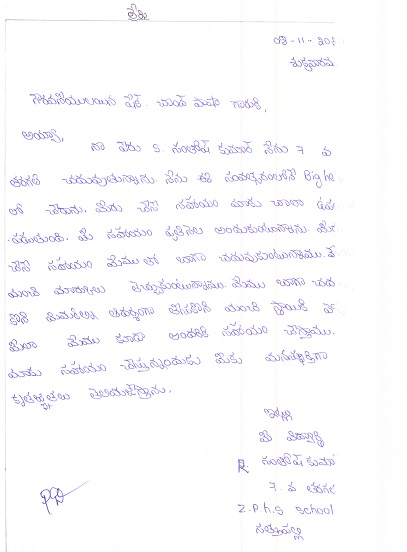 లేఖ
శుక్రవారము
గౌరవనీయులయిన షేక్. చాంద్ పాషా గారికి,
అయ్యా,
నా పేరు S. సంతోష్ కుమార్ నేను 7 వ
తరగతి చదువుతున్నాను. నేను ఈ సంవత్సరంలోనే Big he
లో చేరాను. మీరు చేసే సహాయం మాకు చాలా ఉప
పడుతుంది. మీ సహాయం ప్రతినెల అందుకుంటున్నాను. మీరు
చేసే సహాయం మేము బాగా చదువుకుంటున్నాము.
మంచి మార్కులు తెచ్చుకుంటున్నాము. మేము బాగా చద
కొని మిమ్మల్ని ఆదర్శంగా తీసుకొని మంచి స్థాయికి
మేము కూడా అందరికి సహాయం చేస్తాము.
మాకు సహాయం చేస్తున్నందుకు మీకు మనస్ఫూర్తిగా
కృతజ్ఞతలు తెలియజేస్తాను.
ఇట్లు
మీ విద్యార్థి
R. సంతోష్ కుమా
7. వ తరగతి
Z.P.h.s school
సత్తుపల్లి